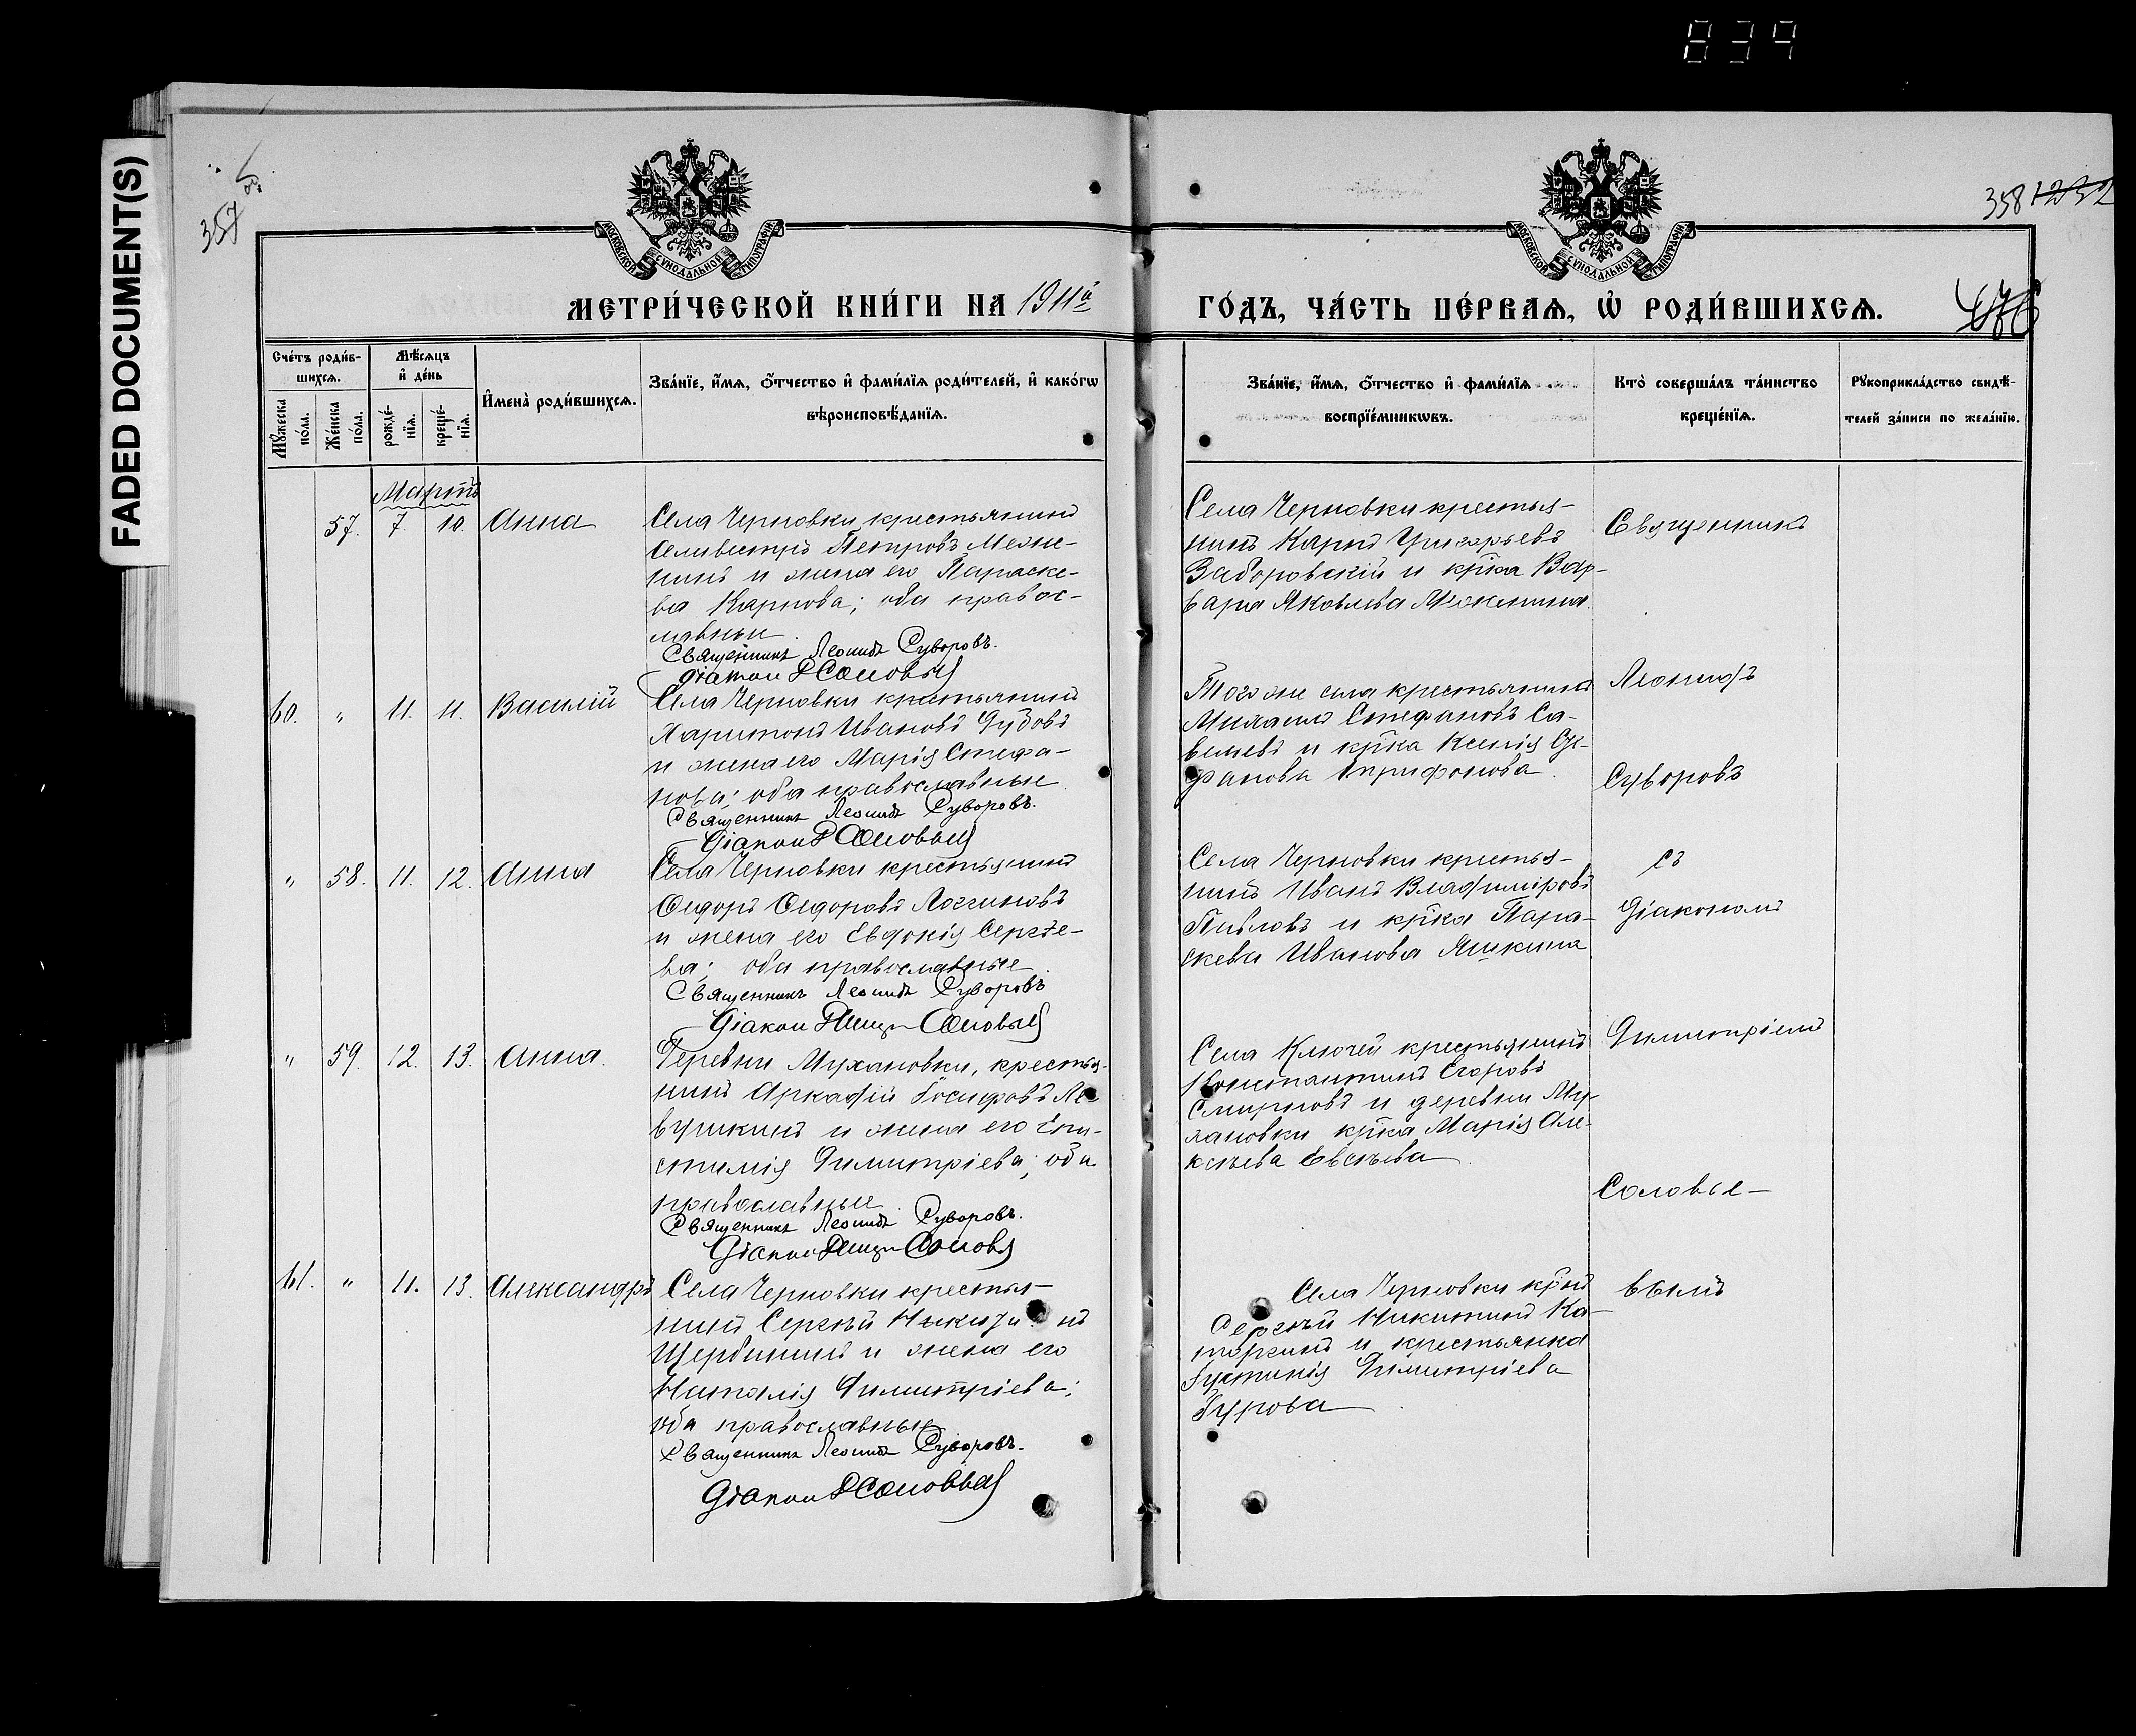 839
FADED DOCUMENT(S)
357
358 1232
МОСКОВСКОЙ СѴНОДАЛЬНОЙ ТИПОГРАФІИ
МОСКОВСКОЙ СѴНОДАЛЬНОЙ ТИПОГРАФІИ
МЕТРИ́ЧЕСКОЙ КНИ́ГИ НА 1911й
ГО́ДЪ, ЧА́СТЬ ПЕ́РВАѦ, Ѡ҆ РОДИ́ВШИХСѦ.
Сче́тъ роди́в-
шихсѧ.
Мꙋ́жеска по́ла.
Же́нска по́ла.
Мѣ́сѧцъ
и҆ де́нь
рожде́-
нїѧ.
креще́-
нїѧ.
И҆мена̀ роди́вшихсѧ.
Зва́нїе, и҆́мѧ, ѻ҆́тчество и҆ фами́лїѧ роди́телей, и҆ како́гѡ
вѣроисповѣ́данїѧ.
Зва́нїе, и҆́мѧ, ѻ҆́тчество и҆ фами́лїѧ
воспрїе́мникѡвъ.
Кто̀ соверша́лъ та́инство
креще́нїѧ.
Рꙋкоприкла́дство свидѣ́-
телей за́писи по жела́нїю.
Мартъ
57. 7. 10. Анна
Села Черновки крестьянинъ
Селивестръ Петровъ Меже-
нинъ и жена его Параске-
ва Карпова; оба правос-
лавные
Священникъ Леонидъ Суворовъ.
Діаконъ Соловьев
Села Черновки крестья-
нинъ Карпъ Григорьевъ
Заборовскій и кр̃ка Вар-
вара Яковлева
60. " 11. 11. Василій
Села Черновки крестьянинъ
Харитонъ Ивановъ Дубовъ
и жена его Марія Стефа-
нова; оба православные
Священникъ Леонидъ Суворовъ.
Діаконъ Соловьев
Того же села крестьянинъ
Михаилъ Стефановъ Са-
вельевъ и кр̃ка Ксенія Сте-
фанова Трифонова.
" 58. 11. 12. Анна
Села Черновки крестьянинъ
Ѳедоръ Ѳедоровъ Логгиновъ
и жена его Евдокія Сергѣе-
ва; оба православные
Священникъ Леонидъ Суворовъ
Діаконъ Соловьев
Села Черновки крестья-
нинъ Иванъ Владиміровъ
Павловъ и кр̃ка Пара-
скева Иванова Яшкина
" 59. 12. 13. Анна.
Деревни Мухановки, крестья-
нинъ Аркадій Іосифовъ Ле-
вушкинъ и жена его Епи-
стимія Димитріева; оба
православные
Священникъ Леонидъ Суворовъ.
Діаконъ Соловьев
Села Ключей крестьянинъ
Константинъ Егоровъ
Смирновъ и деревни Му-
хановки кр̃ка Марія Але-
ксѣева Евсѣева
61. " 11. 13. Александръ
Села Черновки крестья-
нинъ Сергѣй Никитинъ
Щербининъ и жена его
Наталія Димитріева;
оба православные
Священникъ Леонидъ Суворовъ.
Діаконъ Соловьев
Села Черновки кр̃нъ
Сергѣй Никитинъ Ка-
торгинъ и крестьянка
Іустинія Димитріева
Гурова
Священникъ
Леонидъ
Суворовъ
съ
Діакономъ
Димитріемъ
Соловье-
вымъ